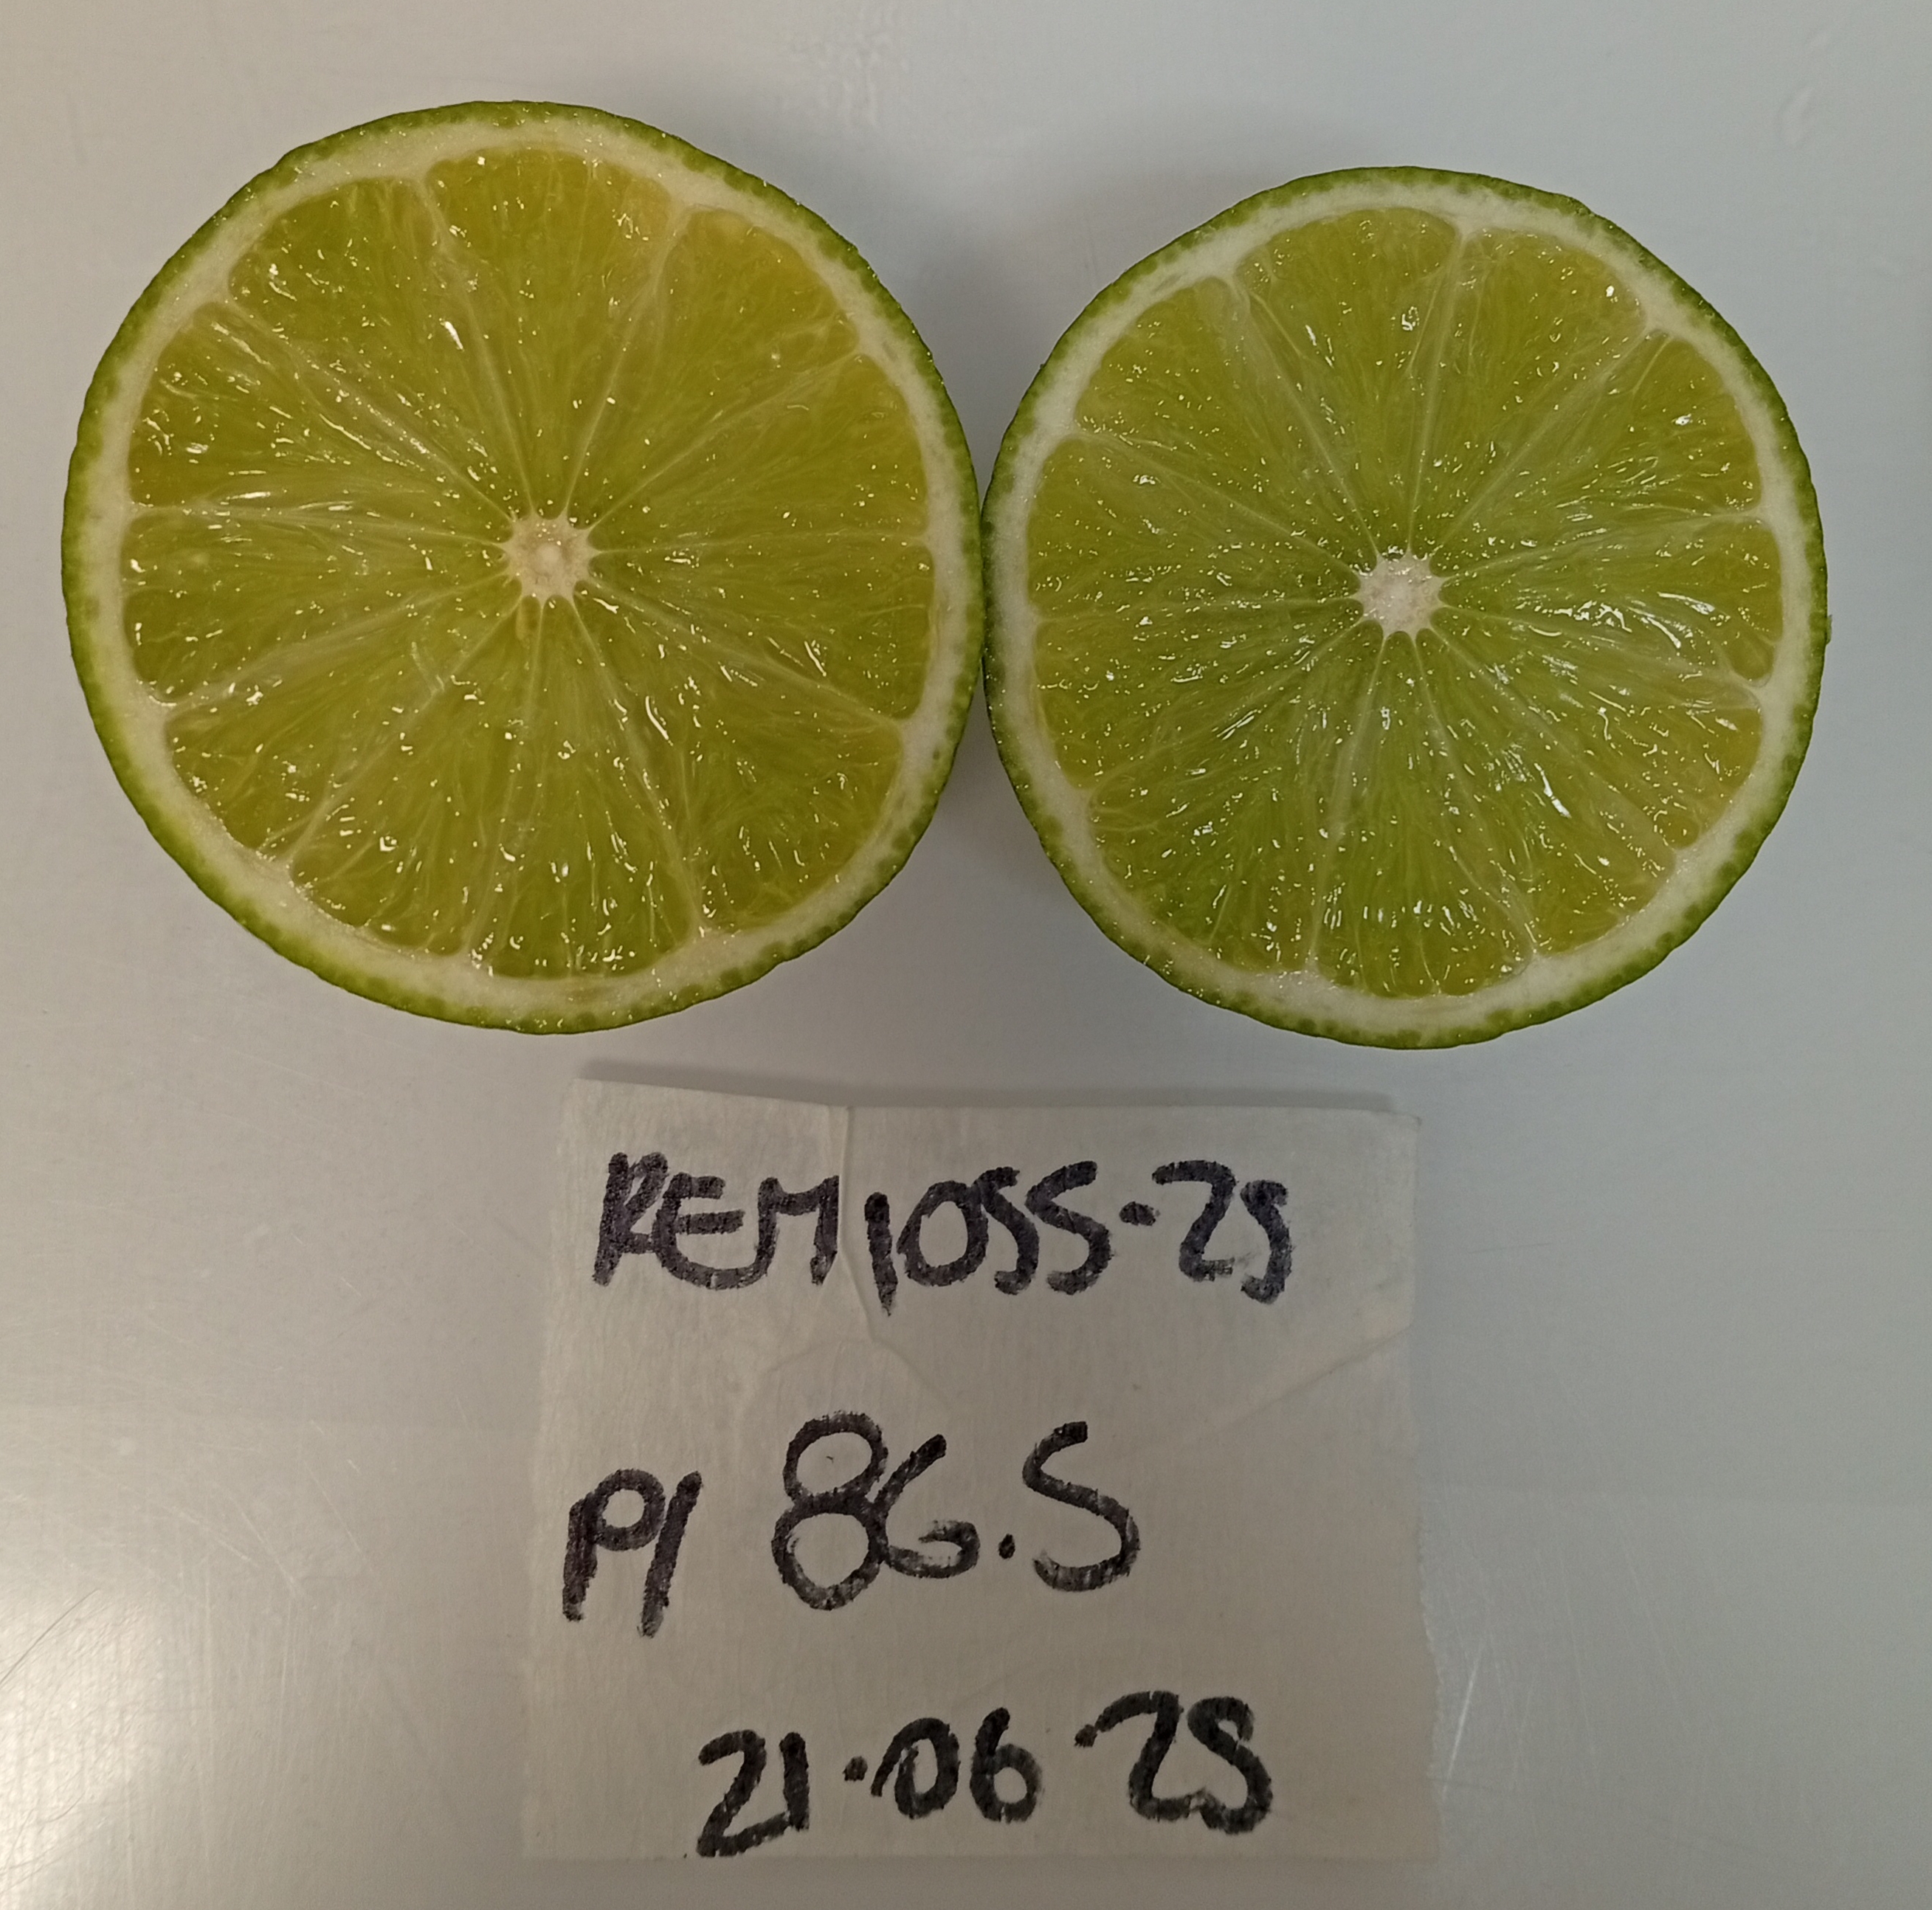 REM1055-25
P1 86.5
21.06.25